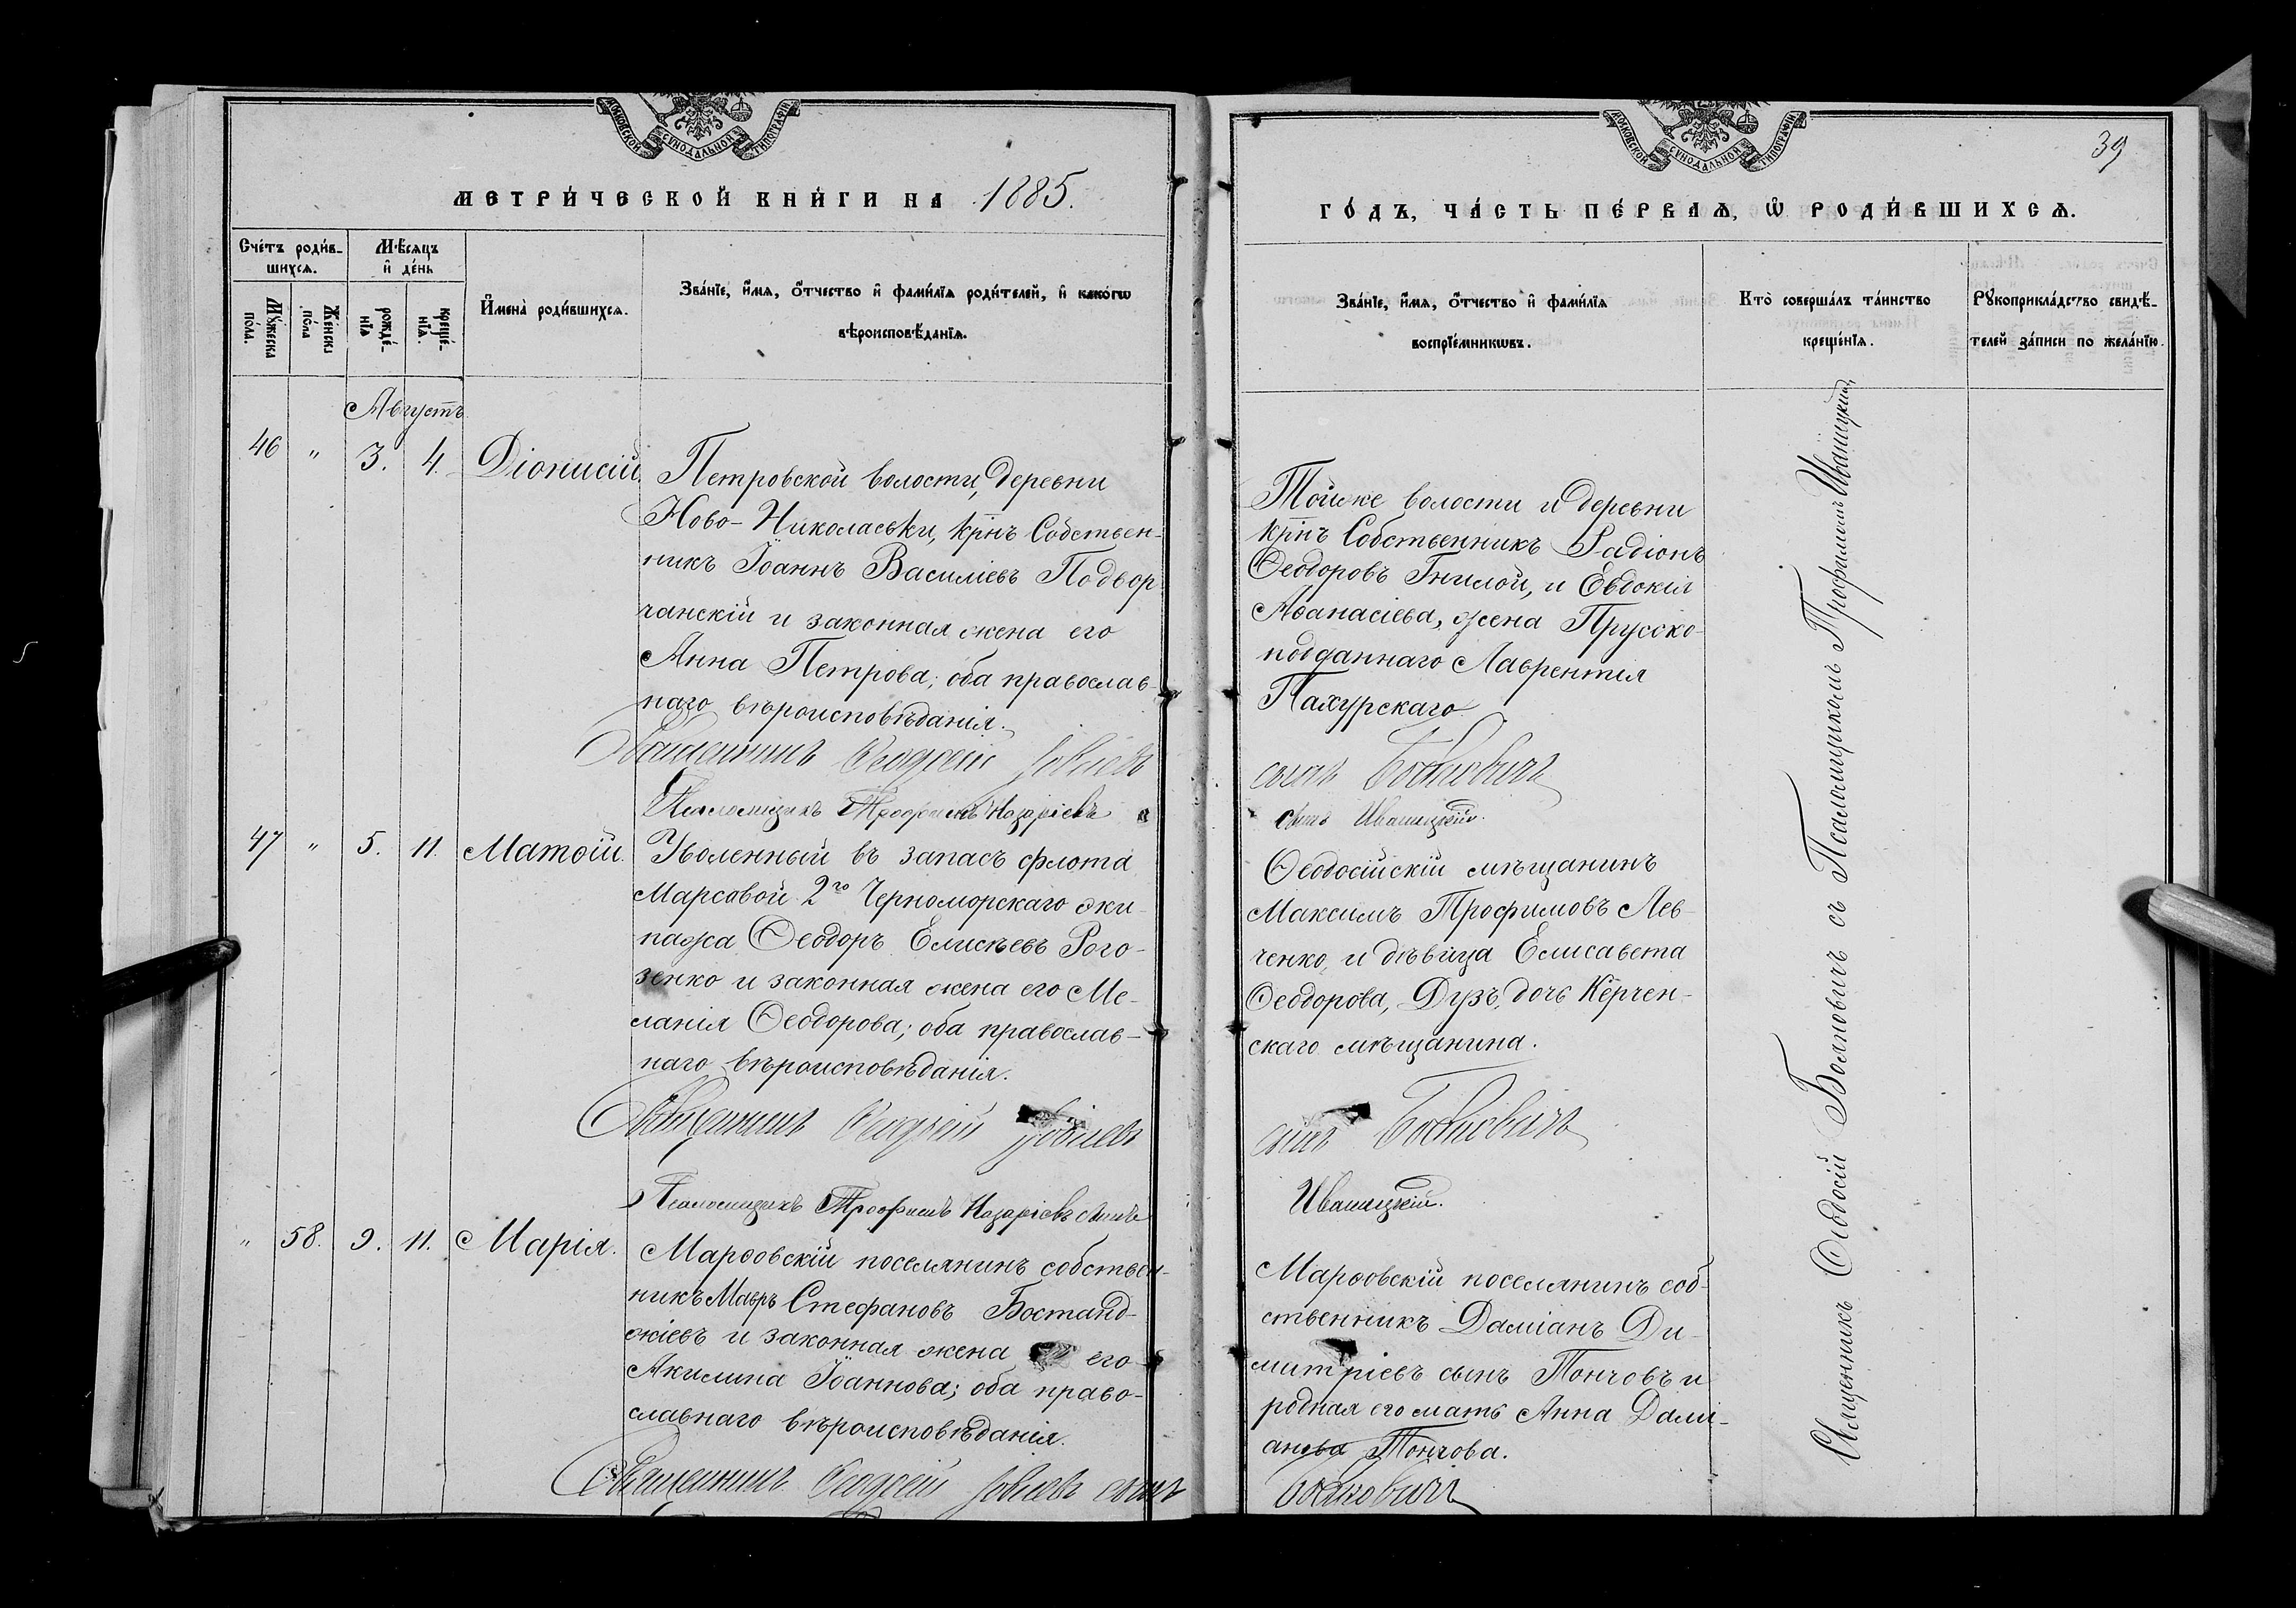 МОСКОВСКОЙ СУНОДАЛЬНОЙ ТИПОГРАФІИ
МЕТРИ́ЧЕСКОЙ КНИ́ГИ НА 1885.
Сче́тъ роди́в-
шихсѧ.
Мꙋ́жеска
по́ла.
Же́нска
по́ла
Мѣ́сѧцъ
и҆ де́нь
рожде́-
нїѧ
креще́-
нїѧ.
И҆мена̀ роди́вшихсѧ.
Зва́нїе, и҆́мѧ, ѻ҆́тчество и҆ фами́лїѧ роди́телей, и҆ како́гѡ
вѣроисповѣ́данїѧ.
Августъ
46 " 3. 4. Діонисій.
Петровской волости, деревни
Ново-Николаевки, крнъ Собствен-
никъ Іоаннъ Василіевъ Подвор
чанскій и законная жена его
Анна Петрова; оба православ-
наго вѣроисповѣданія.
Священникъ Ѳеодосій Іовлевъ
Псаломщикъ Трофимъ Назаріевъ
47 " 5. 11. Матѳій.
Уволенный въ запасъ флота
Марсовой 2го Черноморскаго эки-
пажа Ѳеодоръ Елисѣевъ Рого-
зенко и законная жена его Ме-
ланія Ѳеодорова; оба православ-
наго вѣроисповѣданія.
Священникъ Ѳеодосій Іовлевъ
Псаломщикъ Трофимъ Назаріевъ сынъ
" 58. 9. 11. Марія.
Марѳовскій поселянинъ собствен-
никъ Мавръ Стефановъ Бостанд-
жіевъ и законная жена его
Акилина Іоаннова; оба право-
славнаго вѣроисповѣданія.
Священникъ Ѳеодосій Іовлевъ сынъ
МОСКОВСКОЙ СУНОДАЛЬНОЙ ТИПОГРАФІИ
39
ГО́ДЪ, ЧА́СТЬ ПЕ́РВАѦ, Ѡ҆ РОДИ́ВШИХСѦ.
Зва́нїе, и҆́мѧ, ѻ҆́тчество и҆ фами́лїѧ
воспрїе́мникѡвъ.
Кто̀ соверша́лъ та́инство
креще́нїѧ.
Рꙋкоприкла́дство свидѣ́-
телей за́писи по жела́нїю.
Тойже волости и деревни
крнъ Собственникъ Радіонъ
Ѳеодоровъ Гнилой, и Евдокія
Аѳанасіева, жена Прусско-
подданнаго Лаврентія
Пахурскаго.
сынъ Болтовичъ
сынъ Ивашицкій.
Ѳеодосійскій мѣщанинъ
Максимъ Трофимовъ Лев-
ченко, и дѣвица Елисавета
Ѳеодорова, Дузъ, дочь Керчен-
скаго мѣщанина.
сынъ Болтовичъ
Ивашицкій.
Марѳовскій поселянинъ соб-
ственникъ Даміанъ Ди-
митріевъ сынъ Тончовъ и
родная его мать Анна Дамі-
анова Тончова.
Болтовичъ
Священникъ Ѳеодосій Болтовичъ съ Псаломщикомъ Трофимомъ Ивашицкимъ